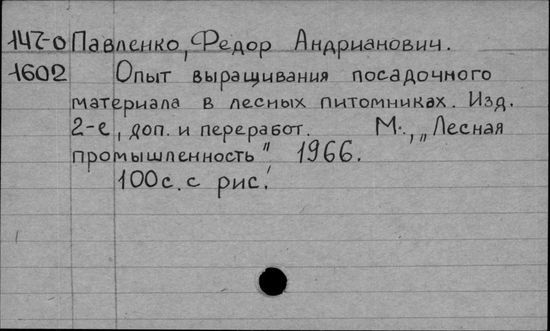 147-о Павленко, Федор Андрианович.
1602 Опыт выращивания посадочного
материала в лесных питомниках. Изд.
2-е, доп. и переработ. М., „Лесная
промышленность", 1966.
100с. с рис.